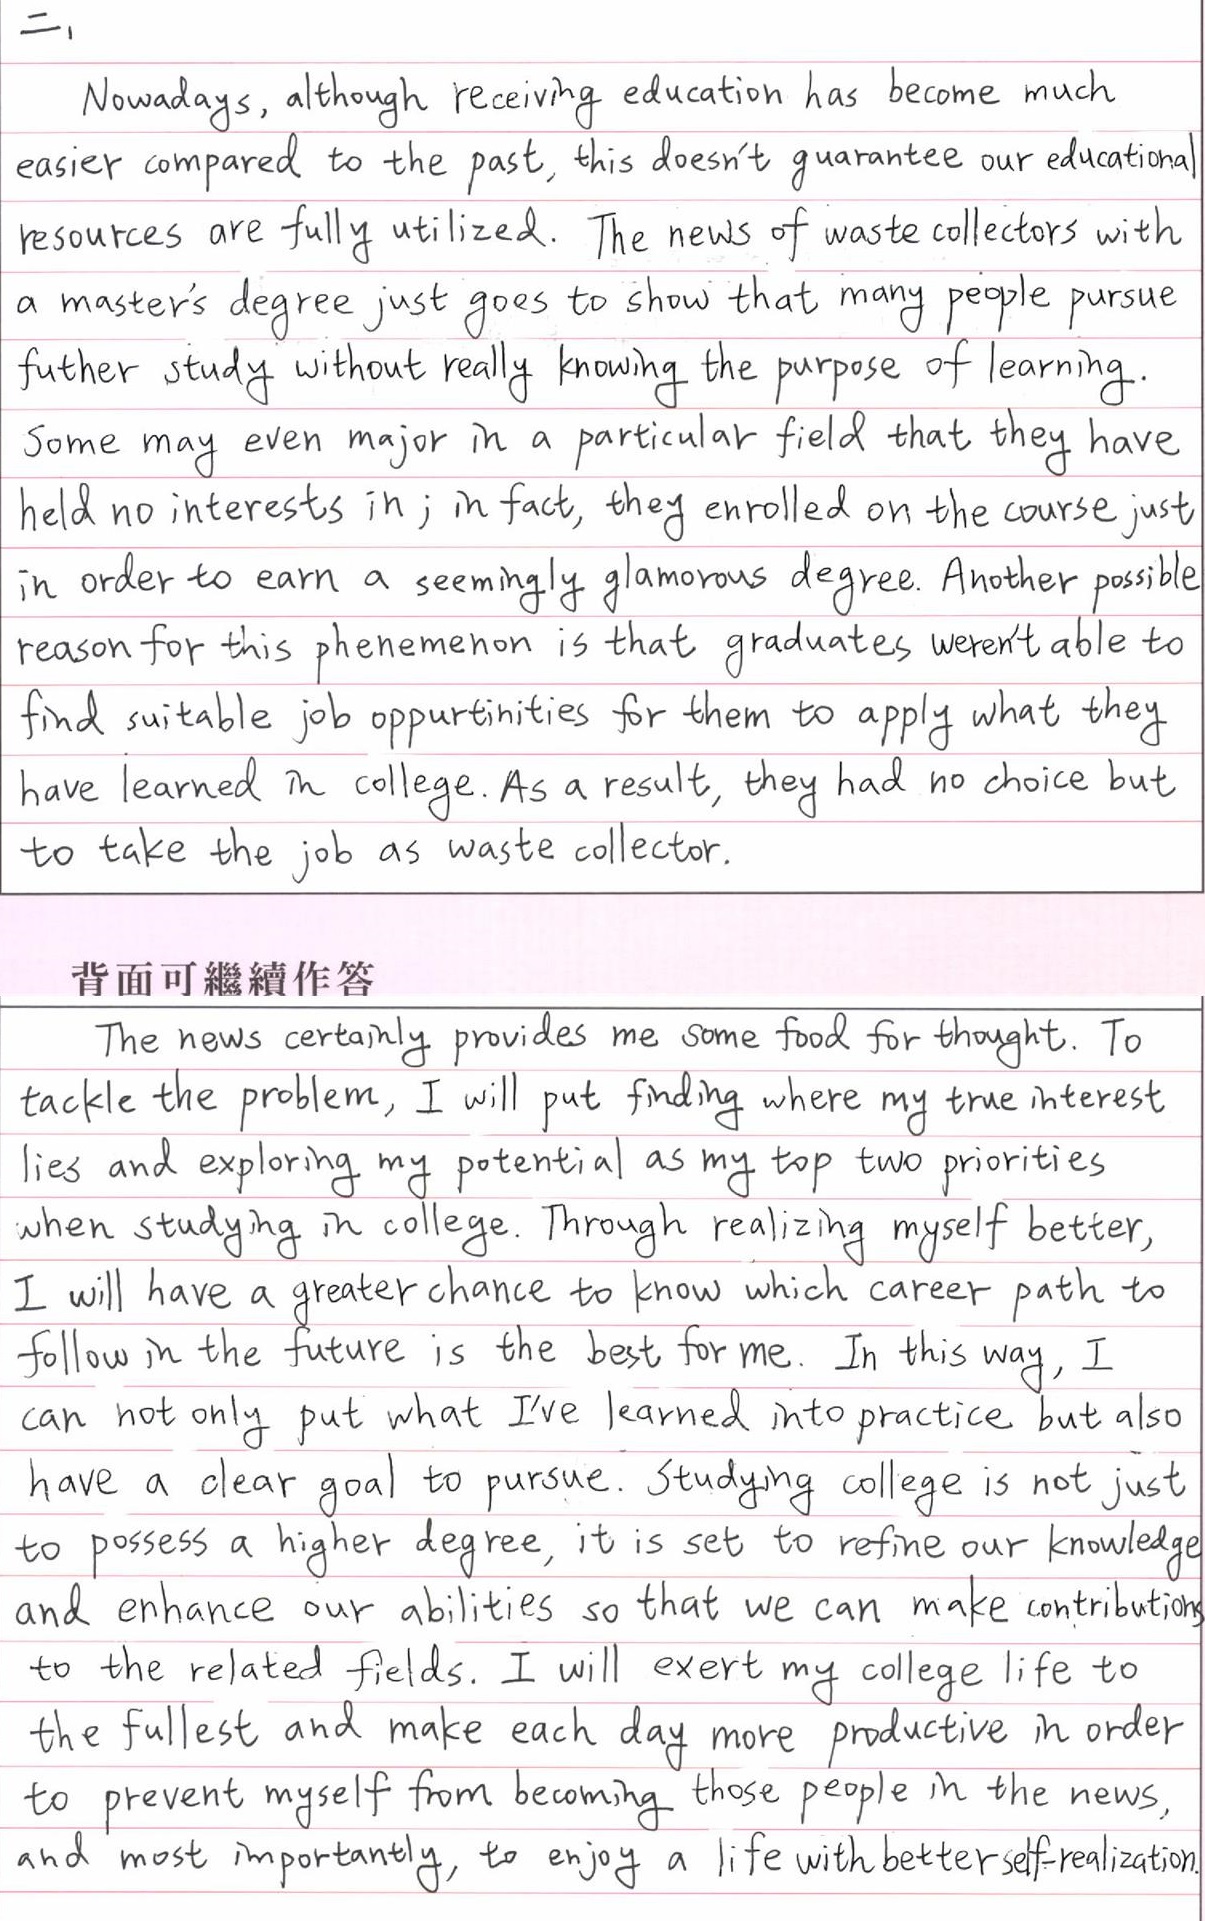 二、
Nowadays, although receiving education has become much
easier compared to the past, this doesn't guarantee our educational
resources are fully utilized. The news of waste collectors with
a master's degree just goes to show that many people pursue
futher study without really knowing the purpose of learning.
Some may even major in a particular field that they have
held no interests in ; in fact, they enrolled on the course just
in order to earn a seemingly glamorous degree. Another possible
reason for this phenemenon is that graduates weren't able to
find suitable job oppurtinities for them to apply what they
have learned in college. As a result, they had no choice but
to take the job as waste collector.
背面可繼續作答
The news certainly provides me some food for thought. To
tackle the problem, I will put finding where my true interest
lies and exploring my potential as my top two priorities
when studying in college. Through realizing myself better,
I will have a greater chance to know which career path to
follow in the future is the best for me. In this way, I
can not only put what I've learned into practice but also
have a clear goal to pursue. Studying college is not just
to possess a higher degree, it is set to refine our knowledge
and enhance our abilities so that we can make contributions
to the related fields. I will exert my college life to
the fullest and make each day more productive in order
to prevent myself from becoming those people in the news,
and most importantly, to enjoy a life with better self-realization.